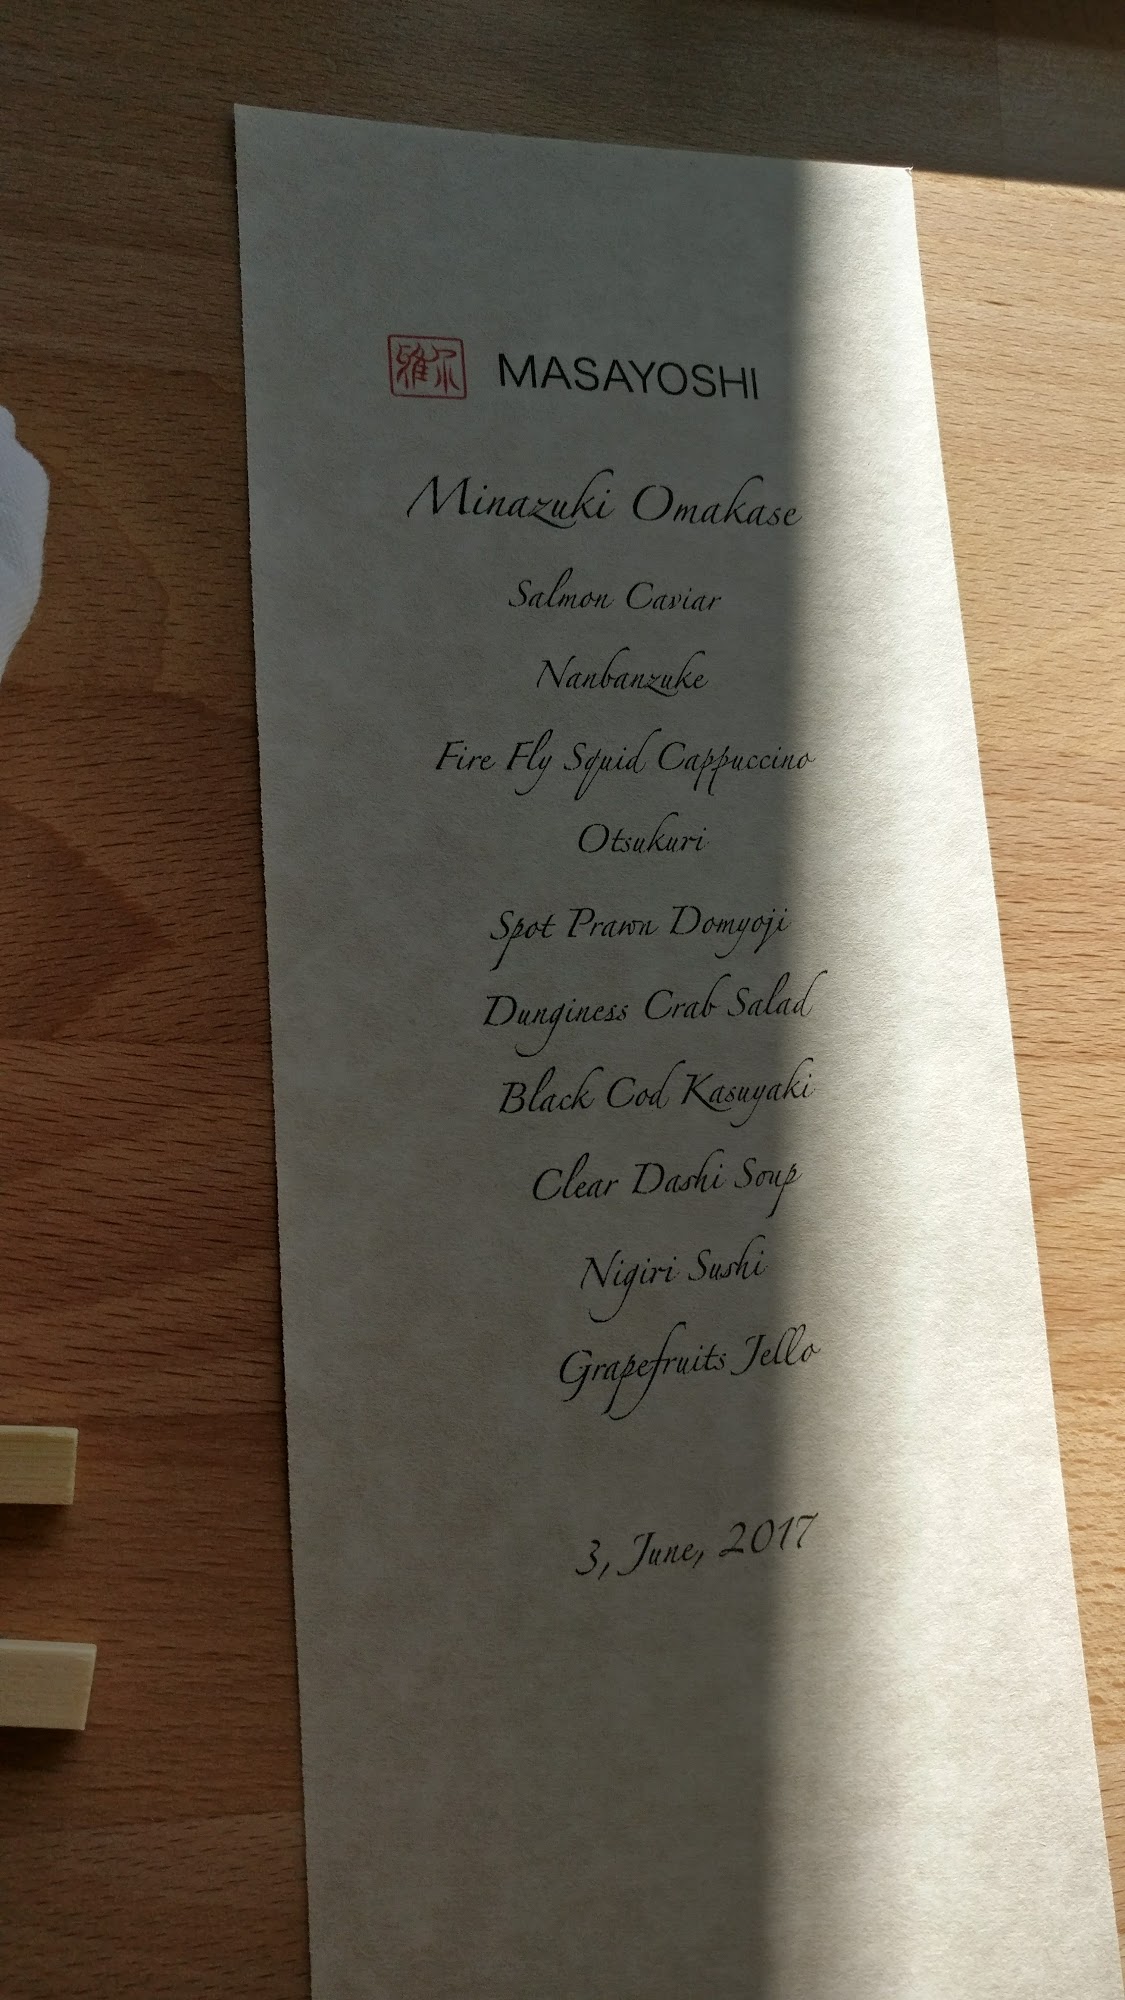 MASAYOSHI
Minazuki Omakase
Salmon Caviar
Nanbanzuke
Fire Fly Squid Cappuccino
Otsukuri
Spot Prawn Domyoji
Dunginess Crab Salad
Black Cod Kasuyaki
Clear Dashi Soup
Nigiri Sushi
Grapefruits Jello
3, June, 2017